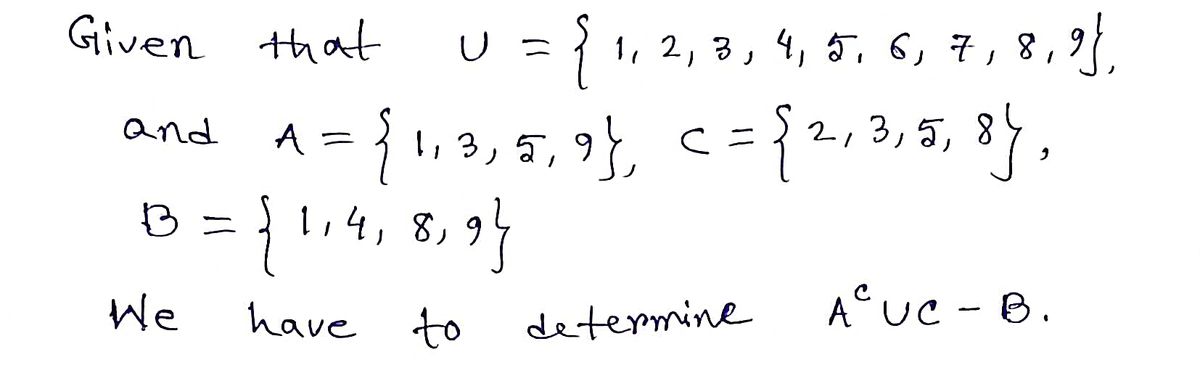 Given that U = { 1, 2, 3, 4, 5, 6, 7, 8, 9},
and A = { 1, 3, 5, 9}, C = { 2, 3, 5, 8},
B = { 1, 4, 8, 9}
We have to determine Aᶜ ∪ C - B.